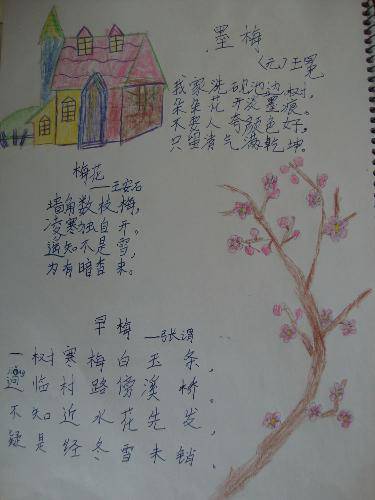 墨梅
(元)王冕
我家洗砚池边树,
朵朵花开淡墨痕。
不要人夸颜色好,
只留清气满乾坤。
梅花
——王安石
墙角数枝梅,
凌寒独自开。
遥知不是雪,
为有暗香来。
早梅
——张谓
一树寒梅白玉条,
迥临村路傍溪桥。
不知近水花先发,
疑是经冬雪未销。